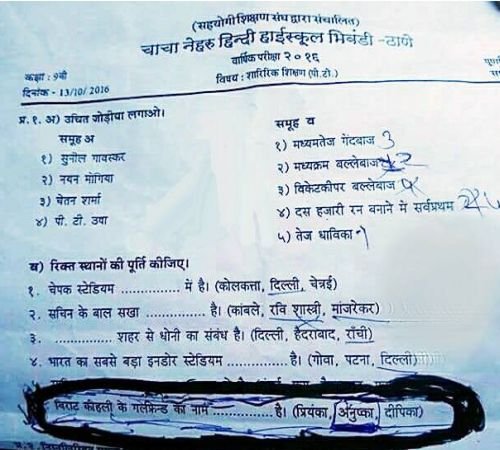 (सहयोगी शिक्षण संघ द्वारा संचालित)
चाचा नेहरु हिन्दी हाईस्कूल भिवंडी -ठाणे
वार्षिक परीक्षा २०१६
कक्षा : 9वी
विषय : शारिरिक शिक्षण (पी.टी.)
दिनांक - 13/10/ 2016
प्र.१. अ) उचित जोडीया लगाओ।
समूह अ
समूह ब
१) सुनील गावस्कर
१) मध्यमतेज गेंदबाज 3
२) नयन मोंगिया
२) मध्यक्रम बल्लेबाज 2
३) चेतन शर्मा
३) विकेटकीपर बल्लेबाज
४) पी. टी. उषा
४) दस हजारी रन बनाने में सर्वप्रथम
५) तेज धाविका
ब) रिक्त स्थानों की पूर्ति कीजिए।
१. चेपक स्टेडियम ............... में है। (कोलकत्ता, दिल्ली, चेन्नई)
२. सचिन के बाल सखा ............... है। (कांबले, रवि शास्त्री, मांजरेकर)
३. ............... शहर से धोनी का संबंध है। (दिल्ली, हैदराबाद, राँची)
४. भारत का सबसे बड़ा इनडोर स्टेडियम ............... है। (गोवा, पटना, दिल्ली)
विराट कोहली के गर्लफ्रेन्ड का नाम ............... है। (प्रियंका, अनुष्का, दीपिका)